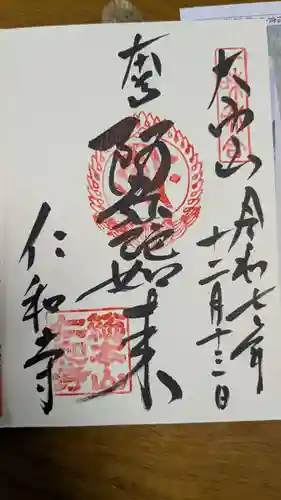 大内山
令和七年
十二月十三日
奉
阿弥陀如来
仁和寺
総本山
仁和寺